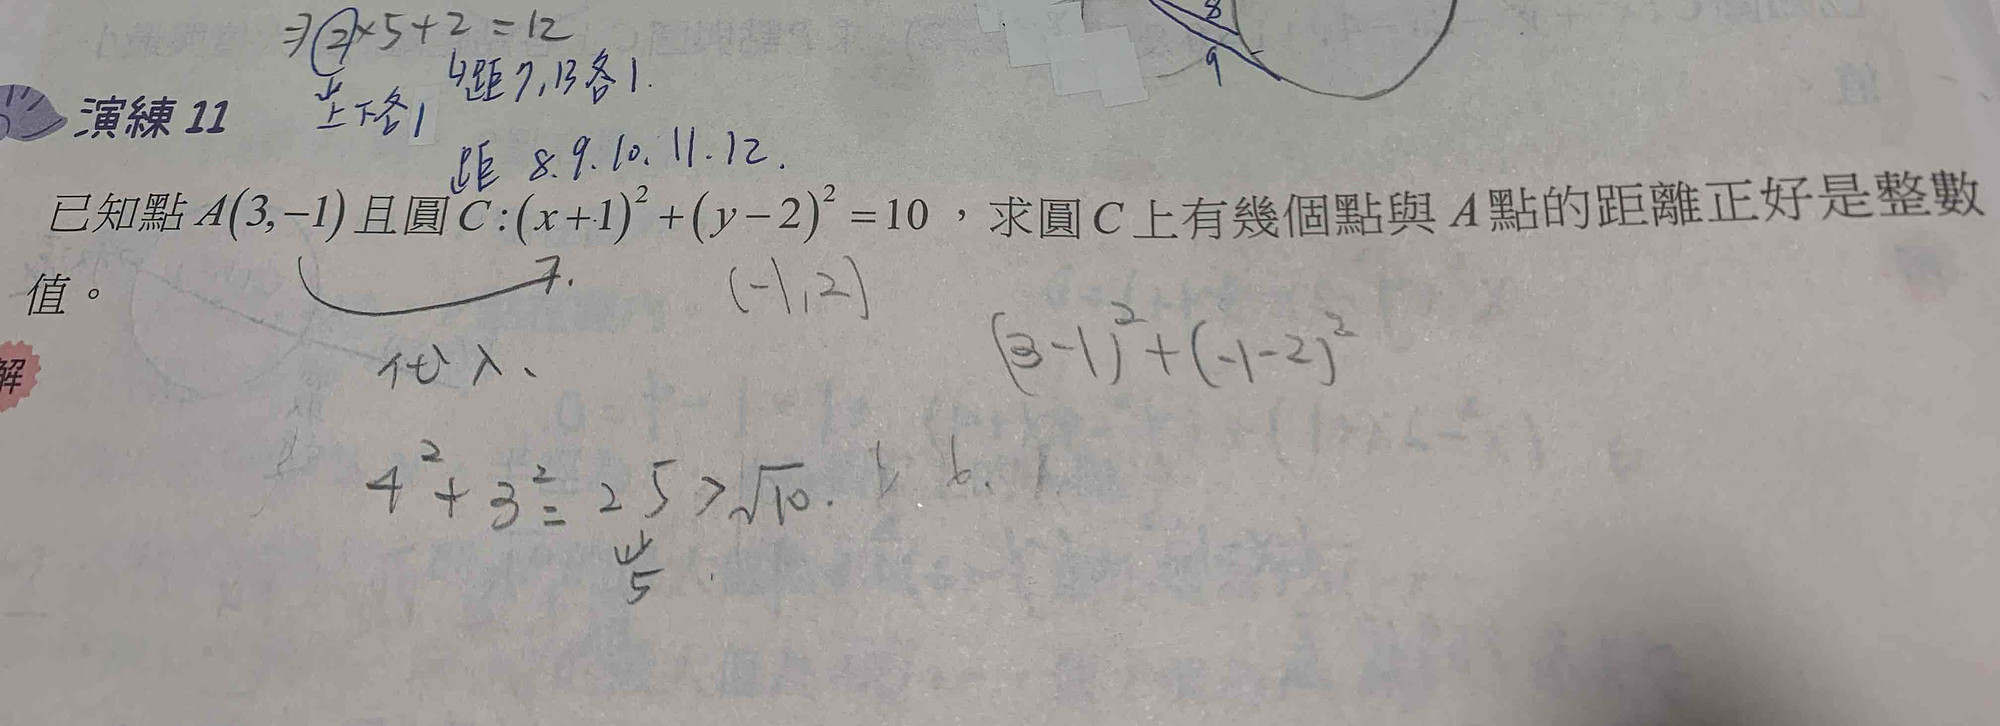 ⇒②×5+2=12
上下各1
距7,13各1.
演練 11
距 8.9.10.11.12.
8
9
已知點 A(3,−1) 且圓 C:(x+1)²+(y−2)²=10，求圓 C 上有幾個點與 A 點的距離正好是整數
值。
(-1,2)
代入、
(3-1)²+(-1-2)²
解
4²+3²=25>√10.
5